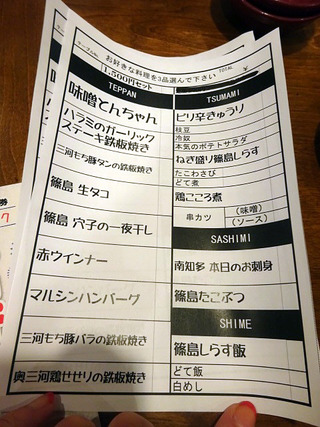 お好きな料理を3品選んで下さい
1,500円セット
TEPPAN
味噌とんちゃん
ハラミのガーリック
ステーキ鉄板焼き
三河もち豚タンの鉄板焼き
篠島 生タコ
篠島 穴子の一夜干し
赤ウインナー
マルシンハンバーグ
三河もち豚バラの鉄板焼き
奥三河鶏せせりの鉄板焼き
TSUMAMI
ピリ辛きゅうり
枝豆
冷奴
本気のポテトサラダ
ねぎ盛り篠島しらす
たこわさび
どて煮
鶏ころ煮
串カツ
(味噌)
(ソース)
SASHIMI
南知多 本日のお刺身
篠島たこぶつ
SHIME
篠島しらす飯
どて飯
白めし